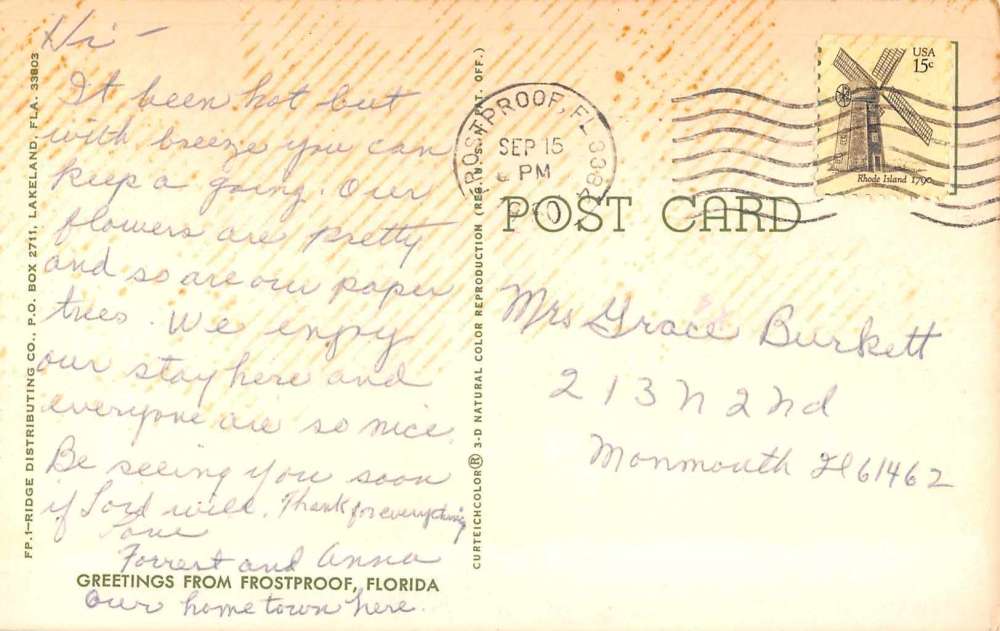 Hi -
It been hot but
with breeze you can
keep a going. Our
flowers are pretty
and so are our paper
trees. We enjoy
our stay here and
everyone are so nice.
Be seeing you soon
if Lord will. Thank for everything
Love
Forrest and Anna
GREETINGS FROM FROSTPROOF, FLORIDA
Our home town here.
FP.1-RIDGE DISTRIBUTING CO., P.O. BOX 2711, LAKELAND, FLA. 33803
CURTEICHCOLOR® 3-D NATURAL COLOR REPRODUCTION (REG. U.S. PAT. OFF.)
FROSTPROOF, FL
SEP 15
PM
USA
15c
Rhode Island 1790
POST CARD
Mrs Grace Burkett
213 N 2nd
Monmouth Il 61462